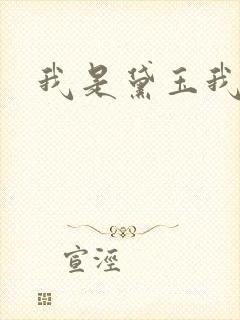 我是黛玉我
宣泾